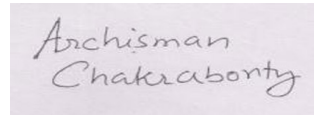 Archisman
Chakraborty